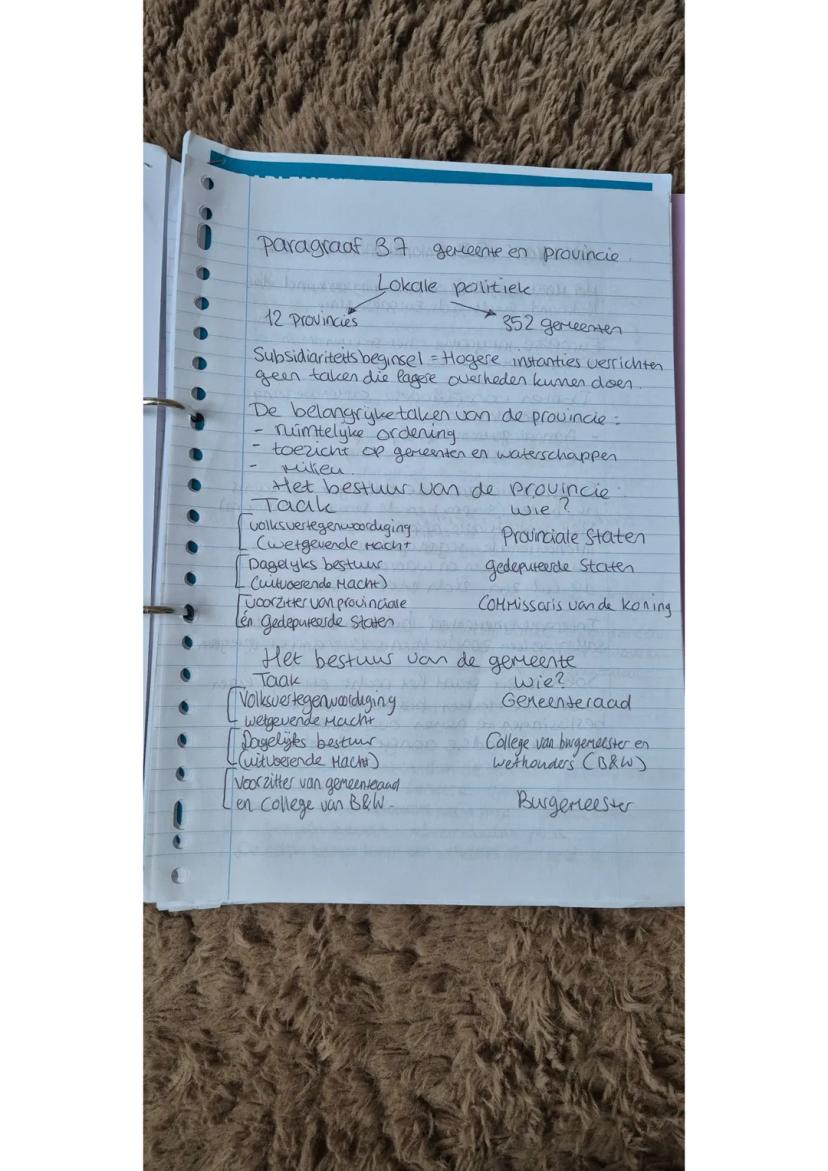 paragraaf 3.7 gemeente en provincie.
Lokale politiek
12 provincies
352 gemeenten
Subsidiariteitsbeginsel = Hogere instanties verrichten
geen taken die lagere overheden kunnen doen.
De belangrijke taken van de provincie:
- ruimtelijke ordening
- toezicht op gemeenten en waterschappen
- Milieu.
Het bestuur van de provincie
Taak wie?
volksvertegenwoordiging
(wetgevende macht Provinciale Staten
Dagelijks bestuur gedeputeerde Staten
(uitvoerende Macht)
voorzitter van provinciale Commissaris van de koning
én gedeputeerde Staten
Het bestuur van de gemeente
Taak wie?
Volksvertegenwoordiging Gemeenteraad
wetgevende Macht
Dagelijks bestuur College van burgemeester en
(uitvoerende Macht) wethouders (B&W)
Voorzitter van gemeenteraad
en College van B&W. Burgemeester